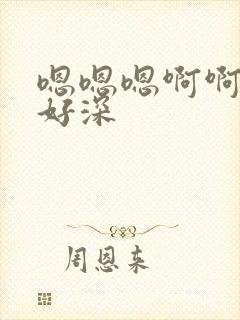 嗯嗯嗯啊啊
好深
周恩来